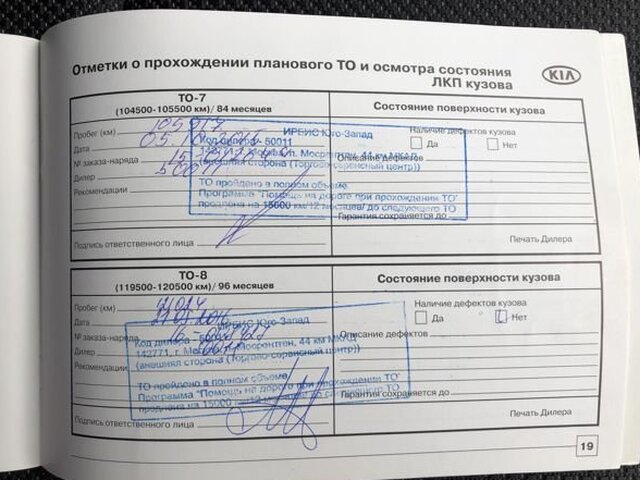 Отметки о прохождении планового ТО и осмотра состояния
ЛКП кузова
KIA
ТО-7
(104500-105500 км)/ 84 месяцев
Состояние поверхности кузова
Пробег (км)
Наличие дефектов кузова
Дата
Да
Нет
№ заказа-наряда
Описание дефектов
Дилер 50011
Рекомендации
ИРБИС Юго-Запад
Код дилера - 50011
44 км МКАД
(внешняя сторона (Торгово-сервисный центр))
ТО пройдено в полном объеме
Программа "Помощь на дороге при прохождении ТО"
продлена на 15000 км/12 месяцев/ до следующего ТО
Гарантия сохраняется до
Подпись ответственного лица
Печать Дилера
ТО-8
(119500-120500 км)/ 96 месяцев
Состояние поверхности кузова
Пробег (км)
Наличие дефектов кузова
Дата
Да
Нет
№ заказа-наряда
Описание дефектов
Дилер
Рекомендации
ИРБИС Юго-Запад
Код дилера - 50011
142771, г. Москва, п. Мосрентген, 44 км МКАД
(внешняя сторона (Торгово-сервисный центр))
ТО пройдено в полном объеме
Программа "Помощь на дороге при прохождении ТО"
продлена на 15000 км/12 месяцев до следующего ТО
Гарантия сохраняется до
Подпись ответственного лица
Печать Дилера
19